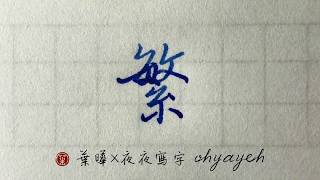 繁
葉曄×夜夜寫字 ohyayeh